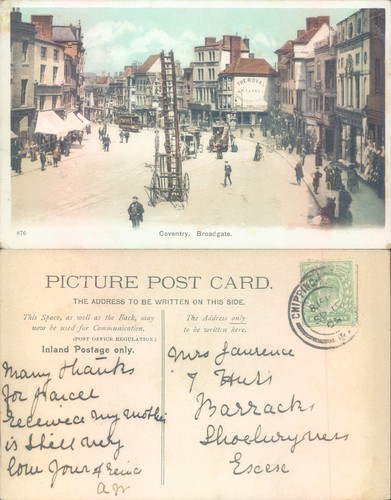 THE ROYAL
876
Coventry. Broadgate.
PICTURE POST CARD.
THE ADDRESS TO BE WRITTEN ON THIS SIDE.
This Space, as well as the Back, may
now be used for Communication.
(POST OFFICE REGULATION.)
Inland Postage only.
The Address only
to be written here.
CHIPPING
Many thanks
for Parcel
received my mother
is Still very
low your
Mrs Laurence
7 Huts
Barracks
Shoeburyness
Essex